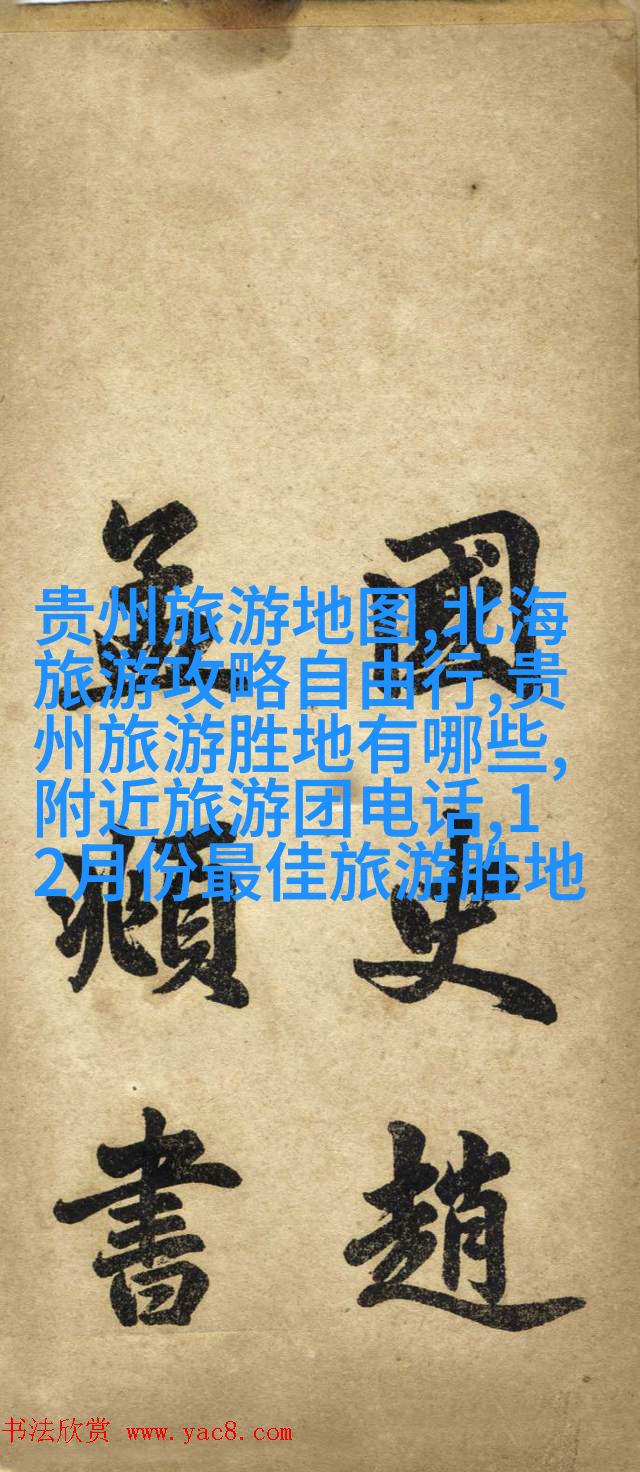 贵州旅游地图,北海
旅游攻略自由行,贵
州旅游胜地有哪些,
附近旅游团电话,1
2月份最佳旅游胜地
國史趙
孟頫書
书法欣赏 www.yac8.com